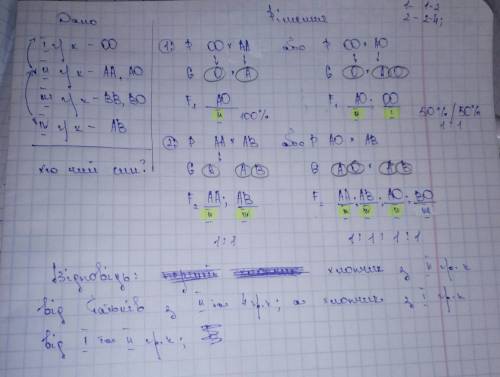 Дано
Рішення
1 - 1-2
2 - 2-4;
I гр. к - OO
II гр. к - AA, AO
III гр. к - BB, BO
IV гр. к - AB
хто чий син?
1) P OO × AA або P OO × AO
G O • A G O • A O
F₁ AO 100% F₁ AO : OO 50% / 50%
II II I 1 : 1
2) P AA × AB або P AO × AB
G A • A B G A O • A B
F₂ AA ; AB F₂ AA : AB : AO : BO
II IV II IV II III
1 : 1 1 : 1 : 1 : 1
Відповідь: хлопчик з II гр. к
від батьків з II та IV гр. к; а хлопчик з I гр. к
від I та II гр. к;